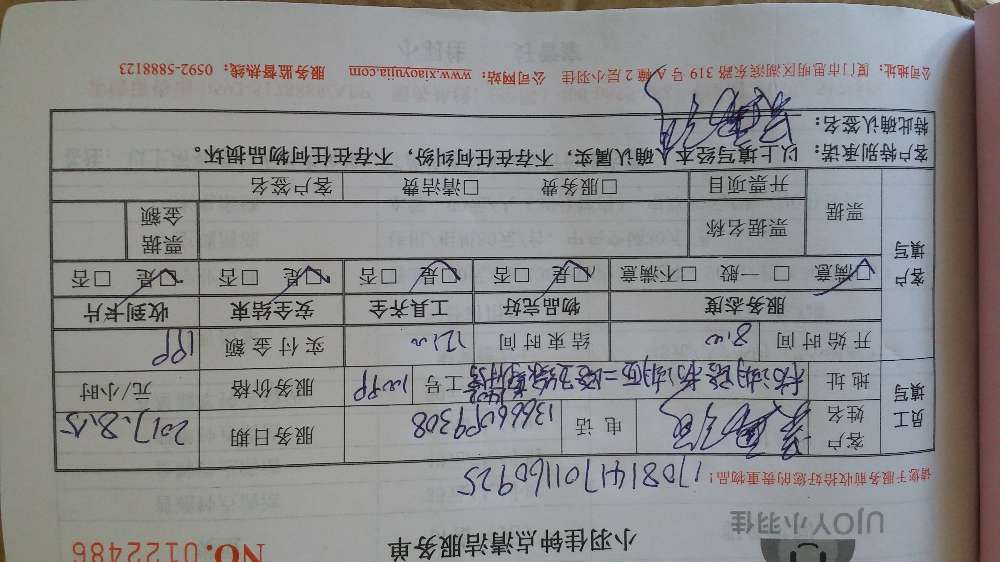 UJOY小羽佳
小羽佳钟点清洁服务单
NO.0122486
请您于服务前收拾好您的贵重物品！
1708141701160925
员工填写
客户姓名
电话 13666089308
服务日期 2017.8.15
地址
工号 10099
服务价格 元/小时
开始时间 8:00
结束时间 12:00
实付金额 199
客户填写
服务态度 物品完好 工具齐全 安全结束 收到卡片
☑满意 □一般 □不满意 ☑是 □否 ☑是 □否 ☑是 □否 ☑是 □否
票据 票据名称 票据金额
开票项目 □服务费 □清洁费 客户签名
客户特别承诺：以上填写经本人确认属实，不存在任何纠纷，不存在任何物品损坏。
特此确认签名：
公司地址：厦门市思明区湖滨东路319号A幢2层小羽佳 公司网站：www.xiaoyujia.com 服务监督热线：0592-5888123